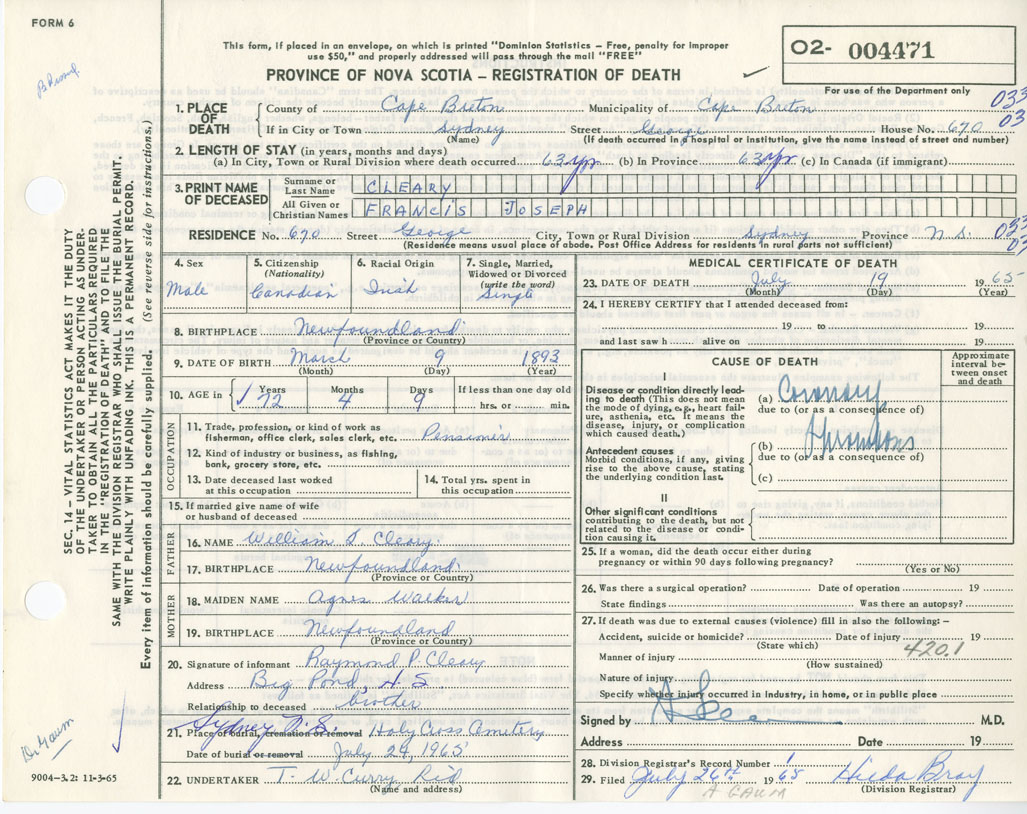 FORM 6
This form, if placed in an envelope, on which is printed "Dominion Statistics – Free, penalty for improper
use $50," and properly addressed will pass through the mail "FREE"
PROVINCE OF NOVA SCOTIA – REGISTRATION OF DEATH
O2- 004471
For use of the Department only
SEC. 14 – VITAL STATISTICS ACT MAKES IT THE DUTY
OF THE UNDERTAKER OR PERSON ACTING AS UNDER-
TAKER TO OBTAIN ALL THE PARTICULARS REQUIRED
IN THE "REGISTRATION OF DEATH" AND TO FILE THE
SAME WITH THE DIVISION REGISTRAR WHO SHALL ISSUE THE BURIAL PERMIT.
WRITE PLAINLY WITH UNFADING INK. THIS IS A PERMANENT RECORD.
Every item of information should be carefully supplied. (See reverse side for instructions.)
1. PLACE OF DEATH County of Cape Breton Municipality of Cape Breton 033
If in City or Town Sydney Street George House No. 670 03
(Name) (If death occurred in a hospital or institution, give the name instead of street and number)
2. LENGTH OF STAY (in years, months and days)
(a) In City, Town or Rural Division where death occurred 63 yrs (b) In Province 63 yrs (c) In Canada (if immigrant)
3. PRINT NAME OF DECEASED Surname or Last Name CLEARY
All Given or Christian Names FRANCIS JOSEPH
RESIDENCE No. 670 Street George City, Town or Rural Division Sydney Province N.S. 033
(Residence means usual place of abode. Post Office Address for residents in rural parts not sufficient) 03
4. Sex Male
5. Citizenship (Nationality) Canadian
6. Racial Origin Irish
7. Single, Married, Widowed or Divorced (write the word) Single
8. BIRTHPLACE Newfoundland
(Province or Country)
9. DATE OF BIRTH March 9 1893
(Month) (Day) (Year)
10. AGE in Years 72 Months 4 Days 9 If less than one day old
hrs. or min.
OCCUPATION
11. Trade, profession, or kind of work as
fisherman, office clerk, sales clerk, etc. Pensioner
12. Kind of industry or business, as fishing,
bank, grocery store, etc.
13. Date deceased last worked
at this occupation
14. Total yrs. spent in
this occupation
15. If married give name of wife
or husband of deceased
FATHER
16. NAME William S. Cleary
17. BIRTHPLACE Newfoundland
(Province or Country)
MOTHER
18. MAIDEN NAME Agnes Walker
19. BIRTHPLACE Newfoundland
(Province or Country)
20. Signature of informant Raymond P. Cleary
Address Big Pond, N.S
Relationship to deceased brother
Sydney N.S.
21. Place of burial, cremation or removal Holy Cross Cemetery
Date of burial or removal July 21, 1965
22. UNDERTAKER T. W. Curry
(Name and address)
9004-3.2: 11-3-65
MEDICAL CERTIFICATE OF DEATH
23. DATE OF DEATH July 19 1965
(Month) (Day) (Year)
24. I HEREBY CERTIFY that I attended deceased from:
19 to 19
and last saw h alive on 19
CAUSE OF DEATH
Approximate
interval be-
tween onset
and death
I
Disease or condition directly lead-
ing to death (This does not mean
the mode of dying, e.g., heart fail-
ure, asthenia, etc. It means the
disease, injury, or complication
which caused death.)
(a) Coronary
due to (or as a consequence of)
Antecedent causes
Morbid conditions, if any, giving
rise to the above cause, stating
the underlying condition last.
(b) Thrombosis
due to (or as a consequence of)
(c)
II
Other significant conditions
contributing to the death, but not
related to the disease or condi-
tion causing it.
25. If a woman, did the death occur either during
pregnancy or within 90 days following pregnancy?
(Yes or No)
26. Was there a surgical operation? Date of operation 19
State findings Was there an autopsy?
27. If death was due to external causes (violence) fill in also the following:–
Accident, suicide or homicide? Date of injury 19
(State which) 420.1
Manner of injury
(How sustained)
Nature of injury
Specify whether injury occurred in industry, in home, or in public place
Signed by M.D.
Address Date 19
28. Division Registrar's Record Number 1
29. Filed July 26th 1965 Hilda Bray
(Division Registrar)
A GAUM
Dr Gaum